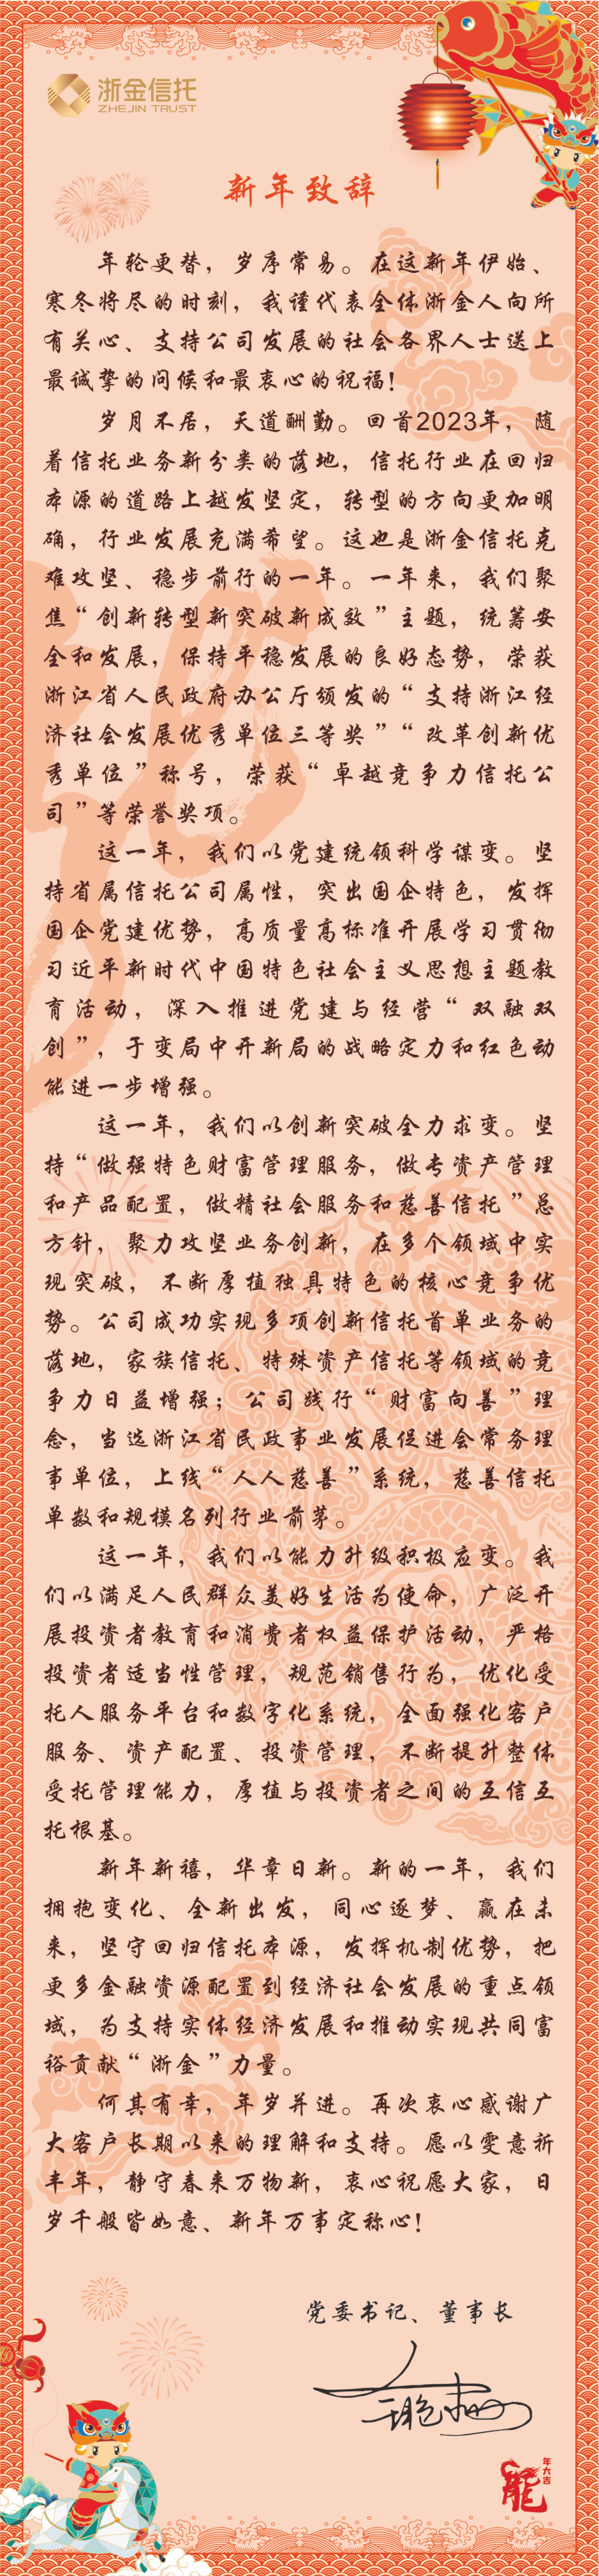 浙金信托
ZHEJIN TRUST
新年致辞
年轮更替，岁序常易。在这新年伊始、
寒冬将尽的时刻，我谨代表全体浙金人向所
有关心、支持公司发展的社会各界人士送上
最诚挚的问候和最衷心的祝福！
岁月不居，天道酬勤。回首2023年，随
着信托业务新分类的落地，信托行业在回归
本源的道路上越发坚定，转型的方向更加明
确，行业发展充满希望。这也是浙金信托克
难攻坚、稳步前行的一年。一年来，我们聚
焦“创新转型新突破新成效”主题，统筹安
全和发展，保持平稳发展的良好态势，荣获
浙江省人民政府办公厅颁发的“支持浙江经
济社会发展优秀单位三等奖”“改革创新优
秀单位”称号，荣获“卓越竞争力信托公
司”等荣誉奖项。
这一年，我们以党建统领科学谋变。坚
持省属信托公司属性，突出国企特色，发挥
国企党建优势，高质量高标准开展学习贯彻
习近平新时代中国特色社会主义思想主题教
育活动，深入推进党建与经营“双融双
创”，于变局中开新局的战略定力和红色动
能进一步增强。
这一年，我们以创新突破全力求变。坚
持“做强特色财富管理服务，做专资产管理
和产品配置，做精社会服务和慈善信托”总
方针，聚力攻坚业务创新，在多个领域中实
现突破，不断厚植独具特色的核心竞争优
势。公司成功实现多项创新信托首单业务的
落地，家族信托、特殊资产信托等领域的竞
争力日益增强；公司践行“财富向善”理
念，当选浙江省民政事业发展促进会常务理
事单位，上线“人人慈善”系统，慈善信托
单数和规模名列行业前茅。
这一年，我们以能力升级积极应变。我
们以满足人民群众美好生活为使命，广泛开
展投资者教育和消费者权益保护活动，严格
投资者适当性管理，规范销售行为，优化受
托人服务平台和数字化系统，全面强化客户
服务、资产配置、投资管理，不断提升整体
受托管理能力，厚植与投资者之间的互信互
托根基。
新年新禧，华章日新。新的一年，我们
拥抱变化、全新出发，同心逐梦、赢在未
来，坚守回归信托本源，发挥机制优势，把
更多金融资源配置到经济社会发展的重点领
域，为支持实体经济发展和推动实现共同富
裕贡献“浙金”力量。
何其有幸，年岁并进。再次衷心感谢广
大客户长期以来的理解和支持。愿以雯意祈
丰年，静守春来万物新，衷心祝愿大家，日
岁千般皆如意、新年万事定称心！
党委书记、董事长
龍
年大吉